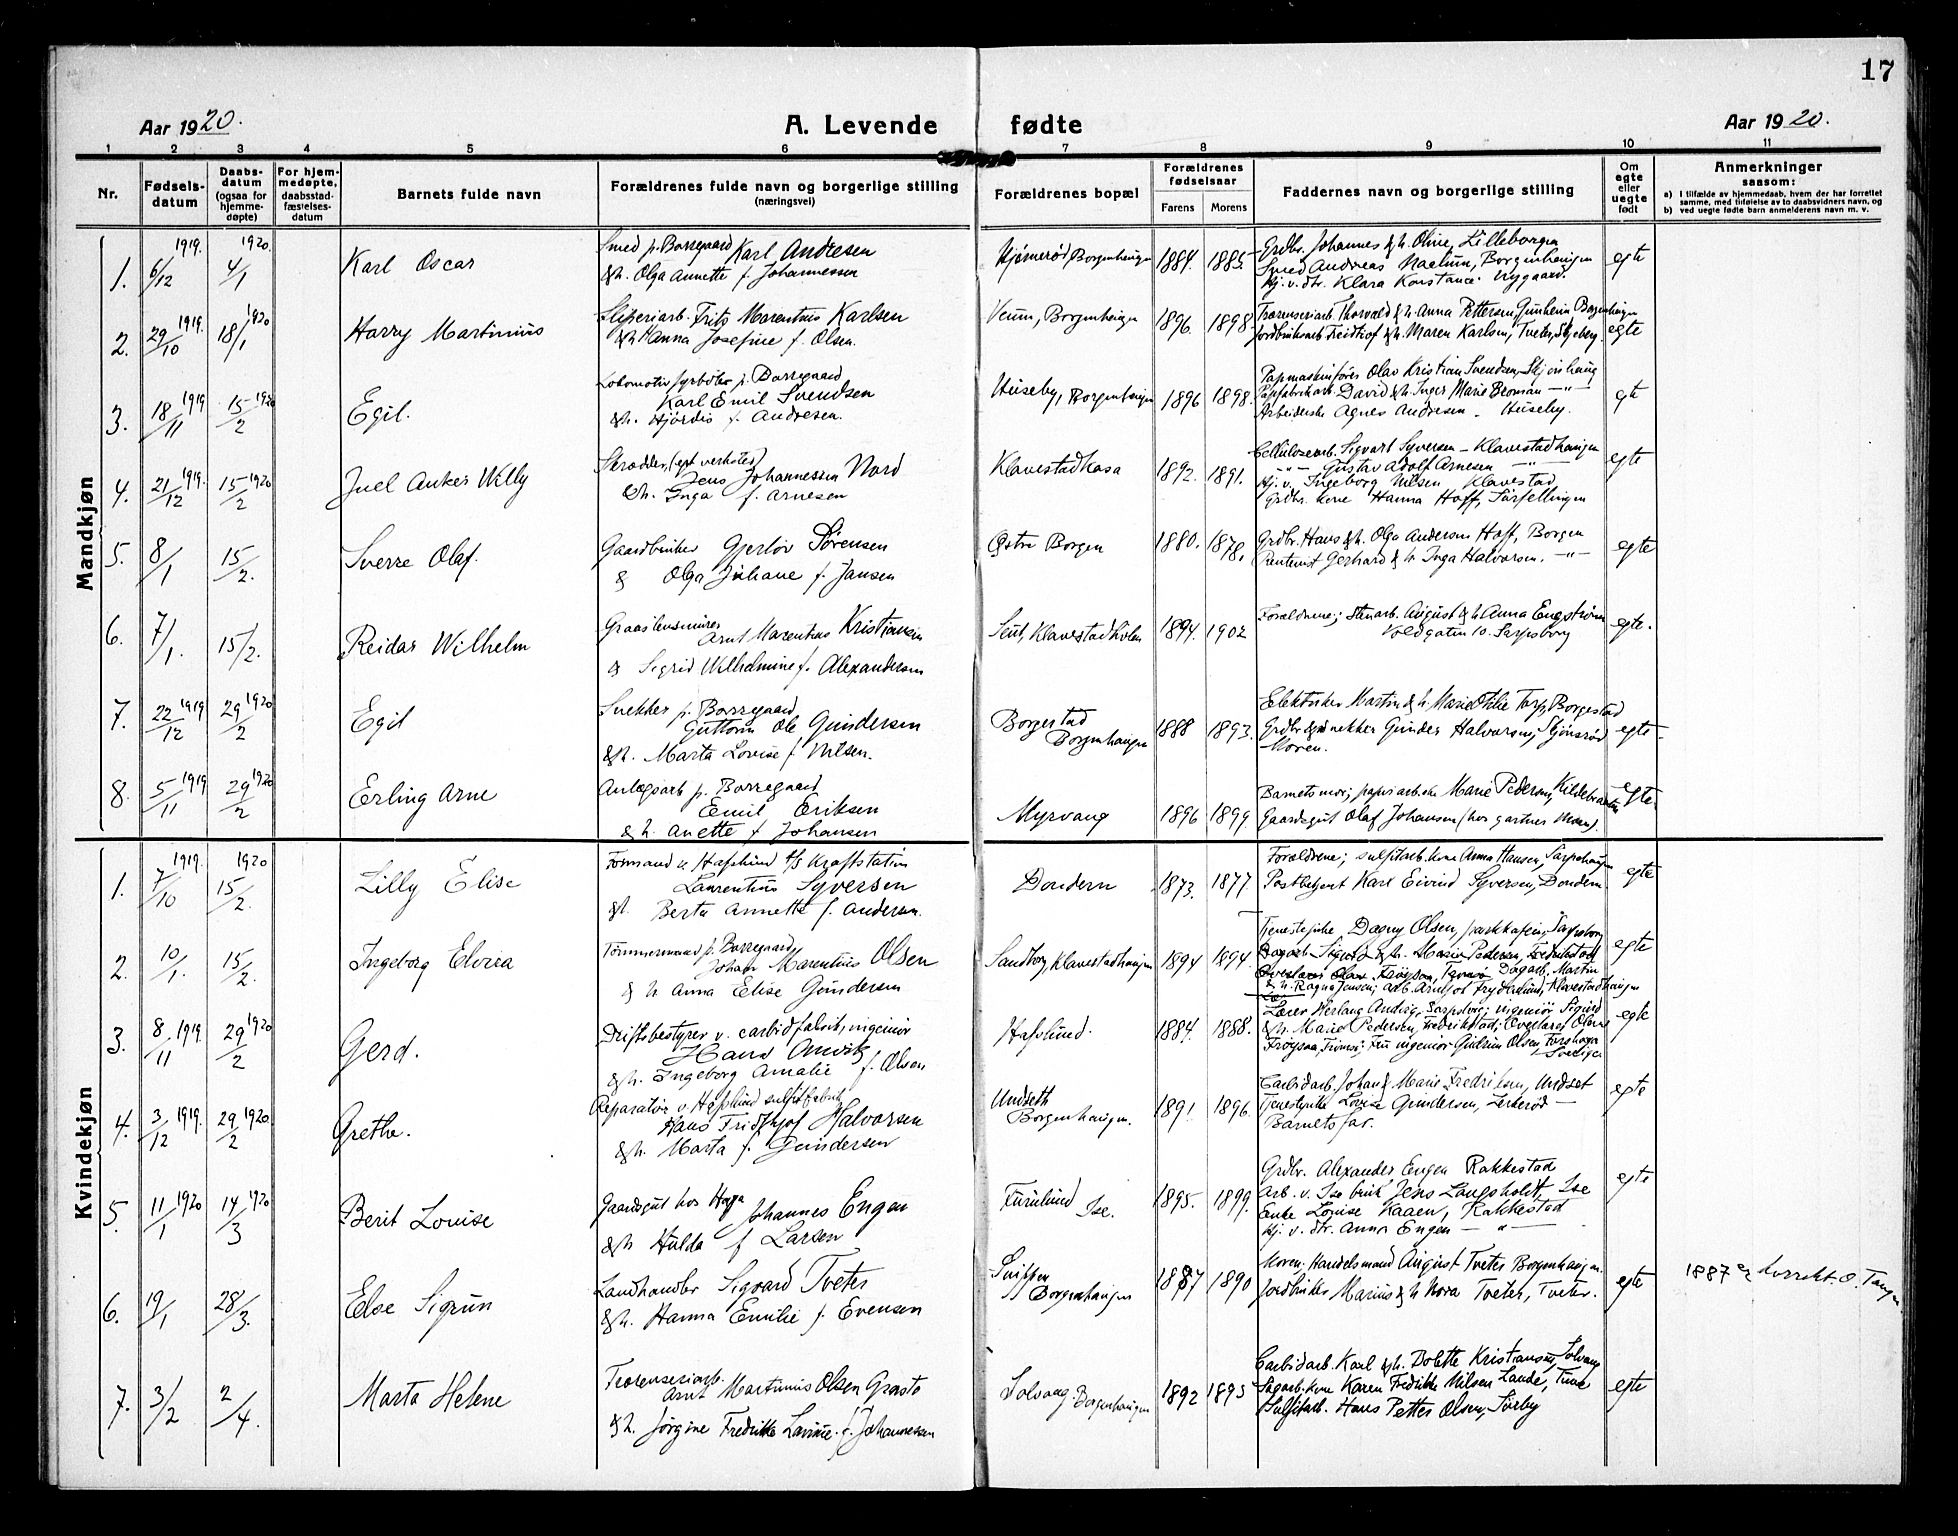 17
Aar 1920.
A. Levende fødte
Aar 1920.
1 2 3 4 5 6 7 8 9 10 11
Nr.
Fødsels-
datum
Daabs-
datum
(ogsaa for
hjemme-
døpte)
For hjem-
medøpte,
daabsstad-
fæstelses-
datum
Barnets fulde navn
Forældrenes fulde navn og borgerlige stilling
(næringsvei)
Forældrenes bopæl
Forældrenes
fødselsaar
Farens Morens
Faddernes navn og borgerlige stilling
Om
egte
eller
uegte
født
Anmerkninger
saasom:
a) I tilfælde av hjemmedaab, hvem der har forrettet
samme, med tilføielse av to daabsvidners navn, og
b) ved uegte fødte barn anmelderens navn m. v.
Mandkjøn
1. 6/12 1919. 4/1 1920. Karl Oscar
Smed p. Borregaard Karl Andresen
& h. Olga Annette f. Johannessen
Borgenhaugen 1884. 1885.
Grdbr. Johannes & h. Oline, Lilleborgen
Smed Andreas Naelum, Borgenhaugen
Hj. v. dtr. Klara Konstance Nygaard.
egte
2. 29/10 1919. 18/1 1920 Harry Martinius
Sliperiarb. Frits Marentius Karlsen
& h. Hanna Josefine f. Olsen.
Veum, Borgenhaugen 1896. 1898.
Torvald & h. Anna Pettersen, Borgenhaugen
Fridtjof & h. Maren Karlsen, Tveter, Skjeberg.
egte
3. 18/11 1919 15/2 1920 Egil.
Lokomotivfyrbøter p. Borregaard
Karl Emil Svendsen
& h. Hjørdis f. Andresen.
Huseby, Borgenhaugen 1896 1898.
Papmaskinfører Olav Kristian Svendsen,
Papfabrikarb. David & h. Inger Marie Broman — " —
Arbeiderske Agnes Andresen - Huseby.
egte
4. 21/12 1919. 15/2 1920 Juel Anker Willy
Skrædder, (eget verksted)
Jens Johannessen Nord
& h. Inga f. Arnesen
Klavestadhasa 1892. 1891.
Cellulosearb. Sigvart Syversen - Klavestadhaugen
— " — Gustav Adolf Arnesen — " —
Hj. v. Ingeborg Nilsen Klavestad
Grdbr. kone Hanna Hoff,
egte
5. 8/1 15/2. Sverre Olaf.
Gaardbruker Gjerløv Sørensen
& Olga Juliane f. Jansen
Østre Borgen 1880. 1878.
Grdbr. Hans & h. Olga Andersen Hoff, Borgen
Gerhard & h. Inga Halvorsen. — " —
egte
6. 7/1. 15/2. Reidar Wilhelm
Graastensmurer
Arnt Marentius Kristiansen
& Sigrid Wilhelmine f. Alexandersen
Klavestadholen 1894. 1902
Forældrene; Stenarb. August & h. Anna Engstrøm
Voldgaten 10. Sarpsborg
egte.
7. 22/12 1919 29/2 1920 Egil
Snekker p. Borregaard
Guttorm Ole Gundersen
& h. Marta Lovise f. Nilsen.
Borgestad
Borgenhaugen 1888 1893.
Elektriker Martin & h. Marie Otilie Torp, Borgestad
Grdbr & snekker Gunder Halvorsen,
Moren.
egte.
8. 5/11 1919 29/2 1920 Erling Arne
Anlegsarb p. Borregaard
Emil Eriksen
& h. Anette f. Johansen
Myrvang 1896 1899.
Barnets mor; Marie Pedersen,
Gaardsgut Olaf Johansen (hos gartner Moen).
egte.
Kvindekjøn
1. 7/10 1919. 15/2. 1920 Lilly Elise
Formand v. Hafslund A/S Kraftstation
Laurentius Syversen
& h. Berta Annette f. Andersen.
Dondern 1873. 1877.
Forældrene; sulfitarb. kone Anna Hansen, Sarpehaugen
Postbetjent Karl Eivind Syversen, Dondern
egte
2. 10/1. 15/2. Ingeborg Elvira
Tømmermand p. Borregaard
Johan Marentius Olsen
& h. Anna Elise Gundersen
Sandborg, Klavestadhaugen 1894 1894.
Tjenestepike Dagny Olsen, parkkafeen, Sarpsborg
Dagarb. Martin
& h. Ragna Jensen; arb. Arnljot Frydenlund, Klavestadhaugen
egte
3. 8/11 1919. 29/2 1920 Gerd.
Driftsbestyrer v. carbidfabrik, ingeniør
Hans
& h. Ingeborg Amalie f. Olsen
Hafslund. 1884. 1888.
Lærer Herlaug Sarpsborg; ingeniør Sigurd
& h. Marie Pedersen, Fredrikstad; Overlærer Olav
Frøysaa, Tromsø; Fru ingeniør Gudrun Olsen,
Sverige
egte
4. 3/12 1919. 29/2 1920. Grethe.
Reparatør v. Hafslund sulfitfabrik
Hans Fridthjof Halvorsen
& h. Marta f. Gundersen
Undseth
Borgenhaugen. 1891. 1896.
Carbidarb. Johan & Marie Fredriksen, Undset
Tjenestepike Lovise Gundersen,
Barnets far.
egte
5. 11/1 1920 14/3 1920 Berit Louise
Gaardsgut hos Haga Johannes Engen
& h. Hulda f Larsen
Furulund Ise. 1895. 1899.
Grdbr. Alexander Engen Rakkestad
Arb. v. Ise bruk Jens Langholdt, Ise
Enke Lovise Kaaen, Rakkestad
Hj. v. dtr. Anna Engen — " —
egte
6. 19/1 28/3. Else Sigrun
Landhandler Sigvard Tveter
& h. Hanna Emilie f. Evensen
Borgenhaugen 1887 1890
Moren, Handelsmand August Tveter Borgenhaugen.
Jordbruker Marius & h Nora Tveter, Tveter.
egte
1887 er korrekt. O. Tangen
7. 3/2 2/4. Marta Helene
Arnt Martinius Olsen Grasto
& h. Jørgine Fredrikke Lavine f. Johannessen
Solvang. Borgenhaugen 1892 1895
Carbidarb. Karl & h. Dolette Kristiansen, Solvang
Sagarb. kone Karen Fredrikke Nilsen Lande, Tune
Sulfitarb. Hans Petter Olsen, Sørby
egte